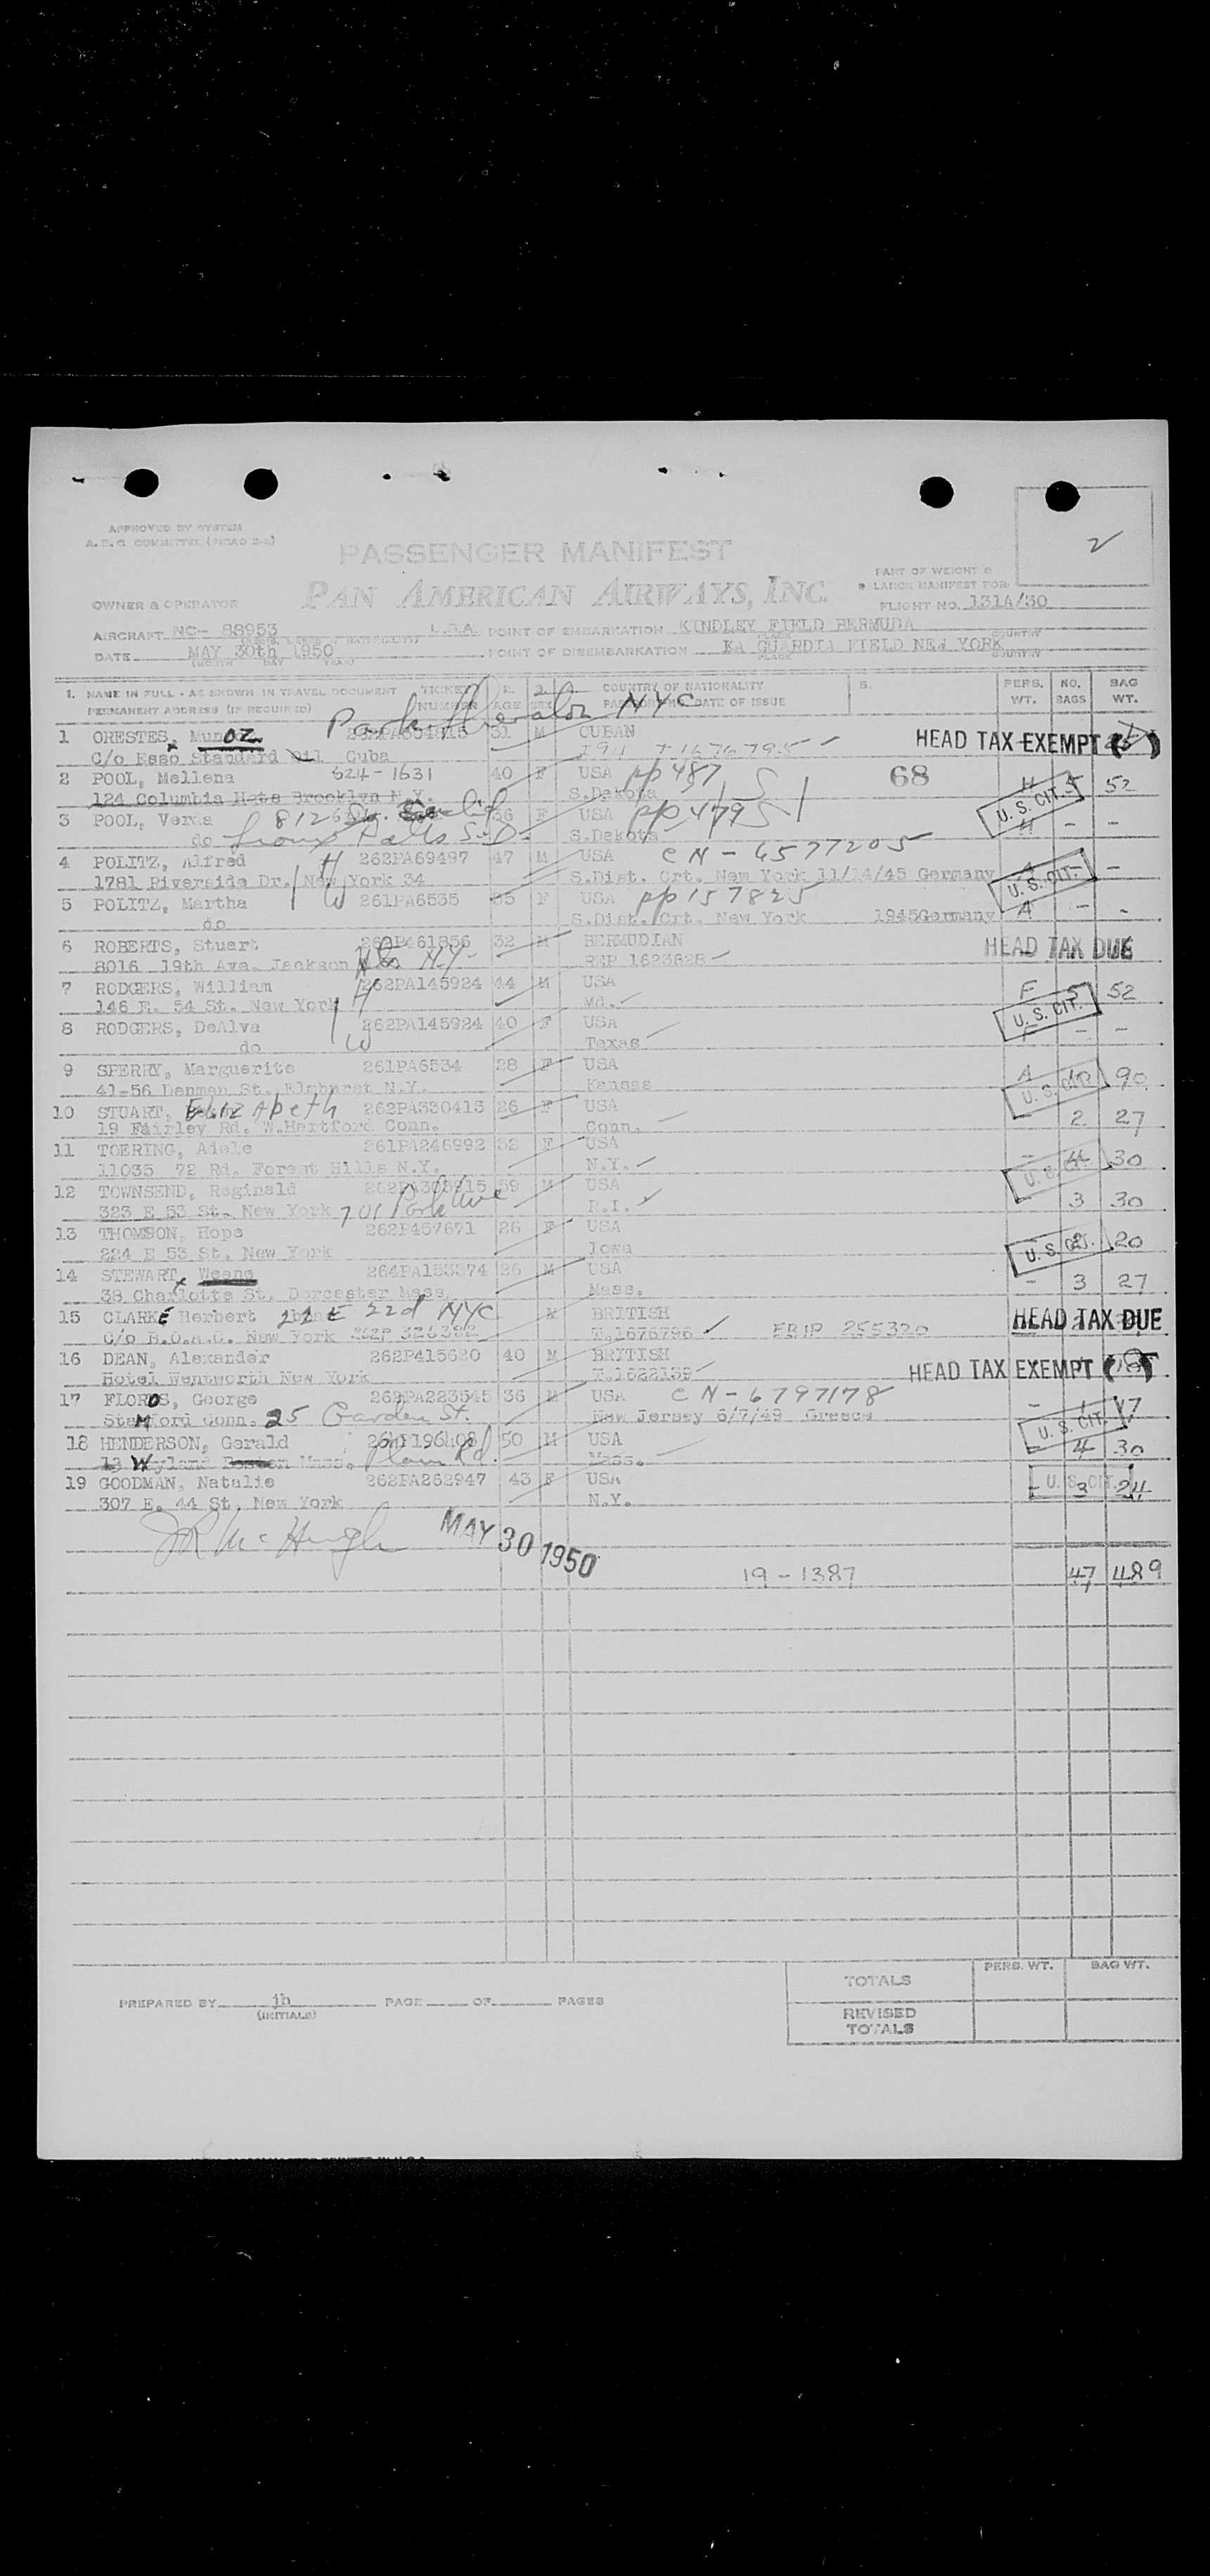 APPROVED BY SYSTEM
2
PASSENGER MANIFEST
PART OF WEIGHT &
PAN AMERICAN AIRWAYS, INC.
MANIFEST FOR
OWNER & OPERATOR
FLIGHT NO. 131A/30
AIRCRAFT NC- 88953 U.S.A. POINT OF EMBARKATION KINDLEY FIELD BERMUDA
DATE MAY 30th 1950 POINT OF DISEMBARKATION LA GUARDIA FIELD NEW YORK
(MONTH DAY YEAR) PLACE COUNTRY
1. NAME IN FULL - AS SHOWN IN TRAVEL DOCUMENT TICKET 2. 3. COUNTRY OF NATIONALITY 5. PERS. NO. BAG
PERMANENT ADDRESS (IF REQUIRED) NUMBER AGE SEX DATE OF ISSUE WT. BAGS WT.
Park Sheraton NYC
1 ORESTES, Munoz 31 M CUBAN HEAD TAX EXEMPT
C/o Esso Standard Oil Cuba
2 POOL, Mellena 624-1631 40 F USA pp 487 68 H 5 52
124 Columbia Hgts Brooklyn N.Y. S.Dakota U. S. CIT.
3 POOL, Verna 8126 36 F USA pp 479 H - -
do Sioux Falls S.D. S.Dakota
4 POLITZ, Alfred H 262PA69497 47 M USA CN - 6577205
1781 Riverside Dr. New York 34 S.Dist. Crt. New York 11/14/45 Germany U. S. CIT. -
5 POLITZ, Martha W 261PA6535 35 F USA pp 157825
do S.Dist. Crt. New York 1945 Germany A - -
6 ROBERTS, Stuart 262P461856 32 M BERMUDIAN HEAD TAX DUE
8016 19th Ave. Jackson Hts N.Y. REP 1623628
7 RODGERS, William 262PA145924 44 M USA F 5 52
146 E. 54 St. New York H Md. U. S. CIT.
8 RODGERS, DeAlva 262PA145924 40 F USA - - -
do W Texas
9 SPERRY, Marguerite 261PA6534 28 F USA A 10 90
41-56 Denman St. Elmhurst N.Y. Kansas U. S. CIT.
10 STUART, Elizabeth 262PA330413 26 F USA - 2 27
19 Fairley Rd. W.Hartford Conn. Conn.
11 TOERING, Adele 261PA246992 32 F USA - 4 30
11035 72 Rd. Forest Hills N.Y. N.Y. U. S. CIT.
12 TOWNSEND, Reginald 59 M USA 3 30
323 E 53 St. New York 701 Park Ave R.I.
13 THOMSON, Hope 262P457671 26 F USA - 2 20
224 E 53 St. New York Iowa U. S. CIT.
14 STEWART, 264PA153374 26 M USA - 3 27
38 Charlotte St. Dorcester Mass. Mass.
15 CLARKE Herbert 22 E 22d NYC M BRITISH HEAD TAX DUE
C/o B.O.A.C. New York 262P 326382 T.1676796 255320
16 DEAN, Alexander 262P415620 40 M BRITISH HEAD TAX EXEMPT
Hotel Wentworth New York T.1622159
17 FLOROS, George 262PA223545 36 M USA CN - 6797178 - 1 17
Stamford Conn. 25 Garden St. New Jersey 6/7/49 Greece U. S. CIT.
18 HENDERSON, Gerald 50 M USA - 4 30
Wayland Mass. Plain Rd. Mass.
19 GOODMAN, Natalie 262PA262947 43 F USA U. S. CIT. - 3 24
307 E. 44 St. New York N.Y.
JR McHugh MAY 30 1950
19 - 1387 47 489
PERS. WT. BAG WT.
TOTALS
PREPARED BY jb PAGE OF PAGES
(INITIALS)
REVISED
TOTALS